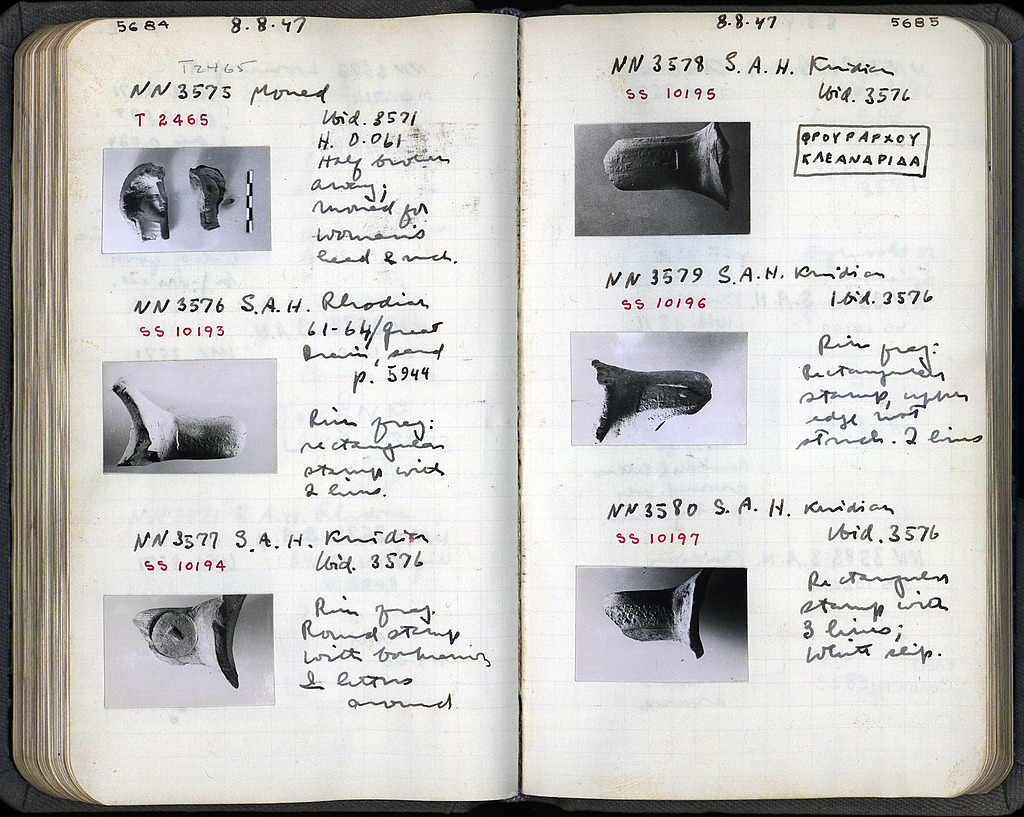 5684 8.8.47
T2465
NN 3575 Mould
T 2465
Ibid. 3571
H. 0.061
Half broken
away;
Mould for
woman's
head & neck.
NN 3576 S.A.H. Rhodian
SS 10193
61-64/Great
Drain, sand
p. 5944
Rim frag:
rectangular
stamp with
2 lines.
NN 3577 S.A.H. Knidian
SS 10194
Ibid. 3576
Rim frag.
Round stamp
with
& letters
around
8.8.47 5685
NN 3578 S.A.H. Knidian
SS 10195
Ibid. 3576
ΦΡΟΥΡΑΡΧΟΥ
ΚΛΕΑΝΔΡΙΔΑ
NN 3579 S.A.H. Knidian
SS 10196
Ibid. 3576
Rim frag:
Rectangular
stamp, upper
edge not
struck. 2 lines
NN 3580 S.A.H. Knidian
SS 10197
Ibid. 3576
Rectangular
stamp with
3 lines;
White slip.